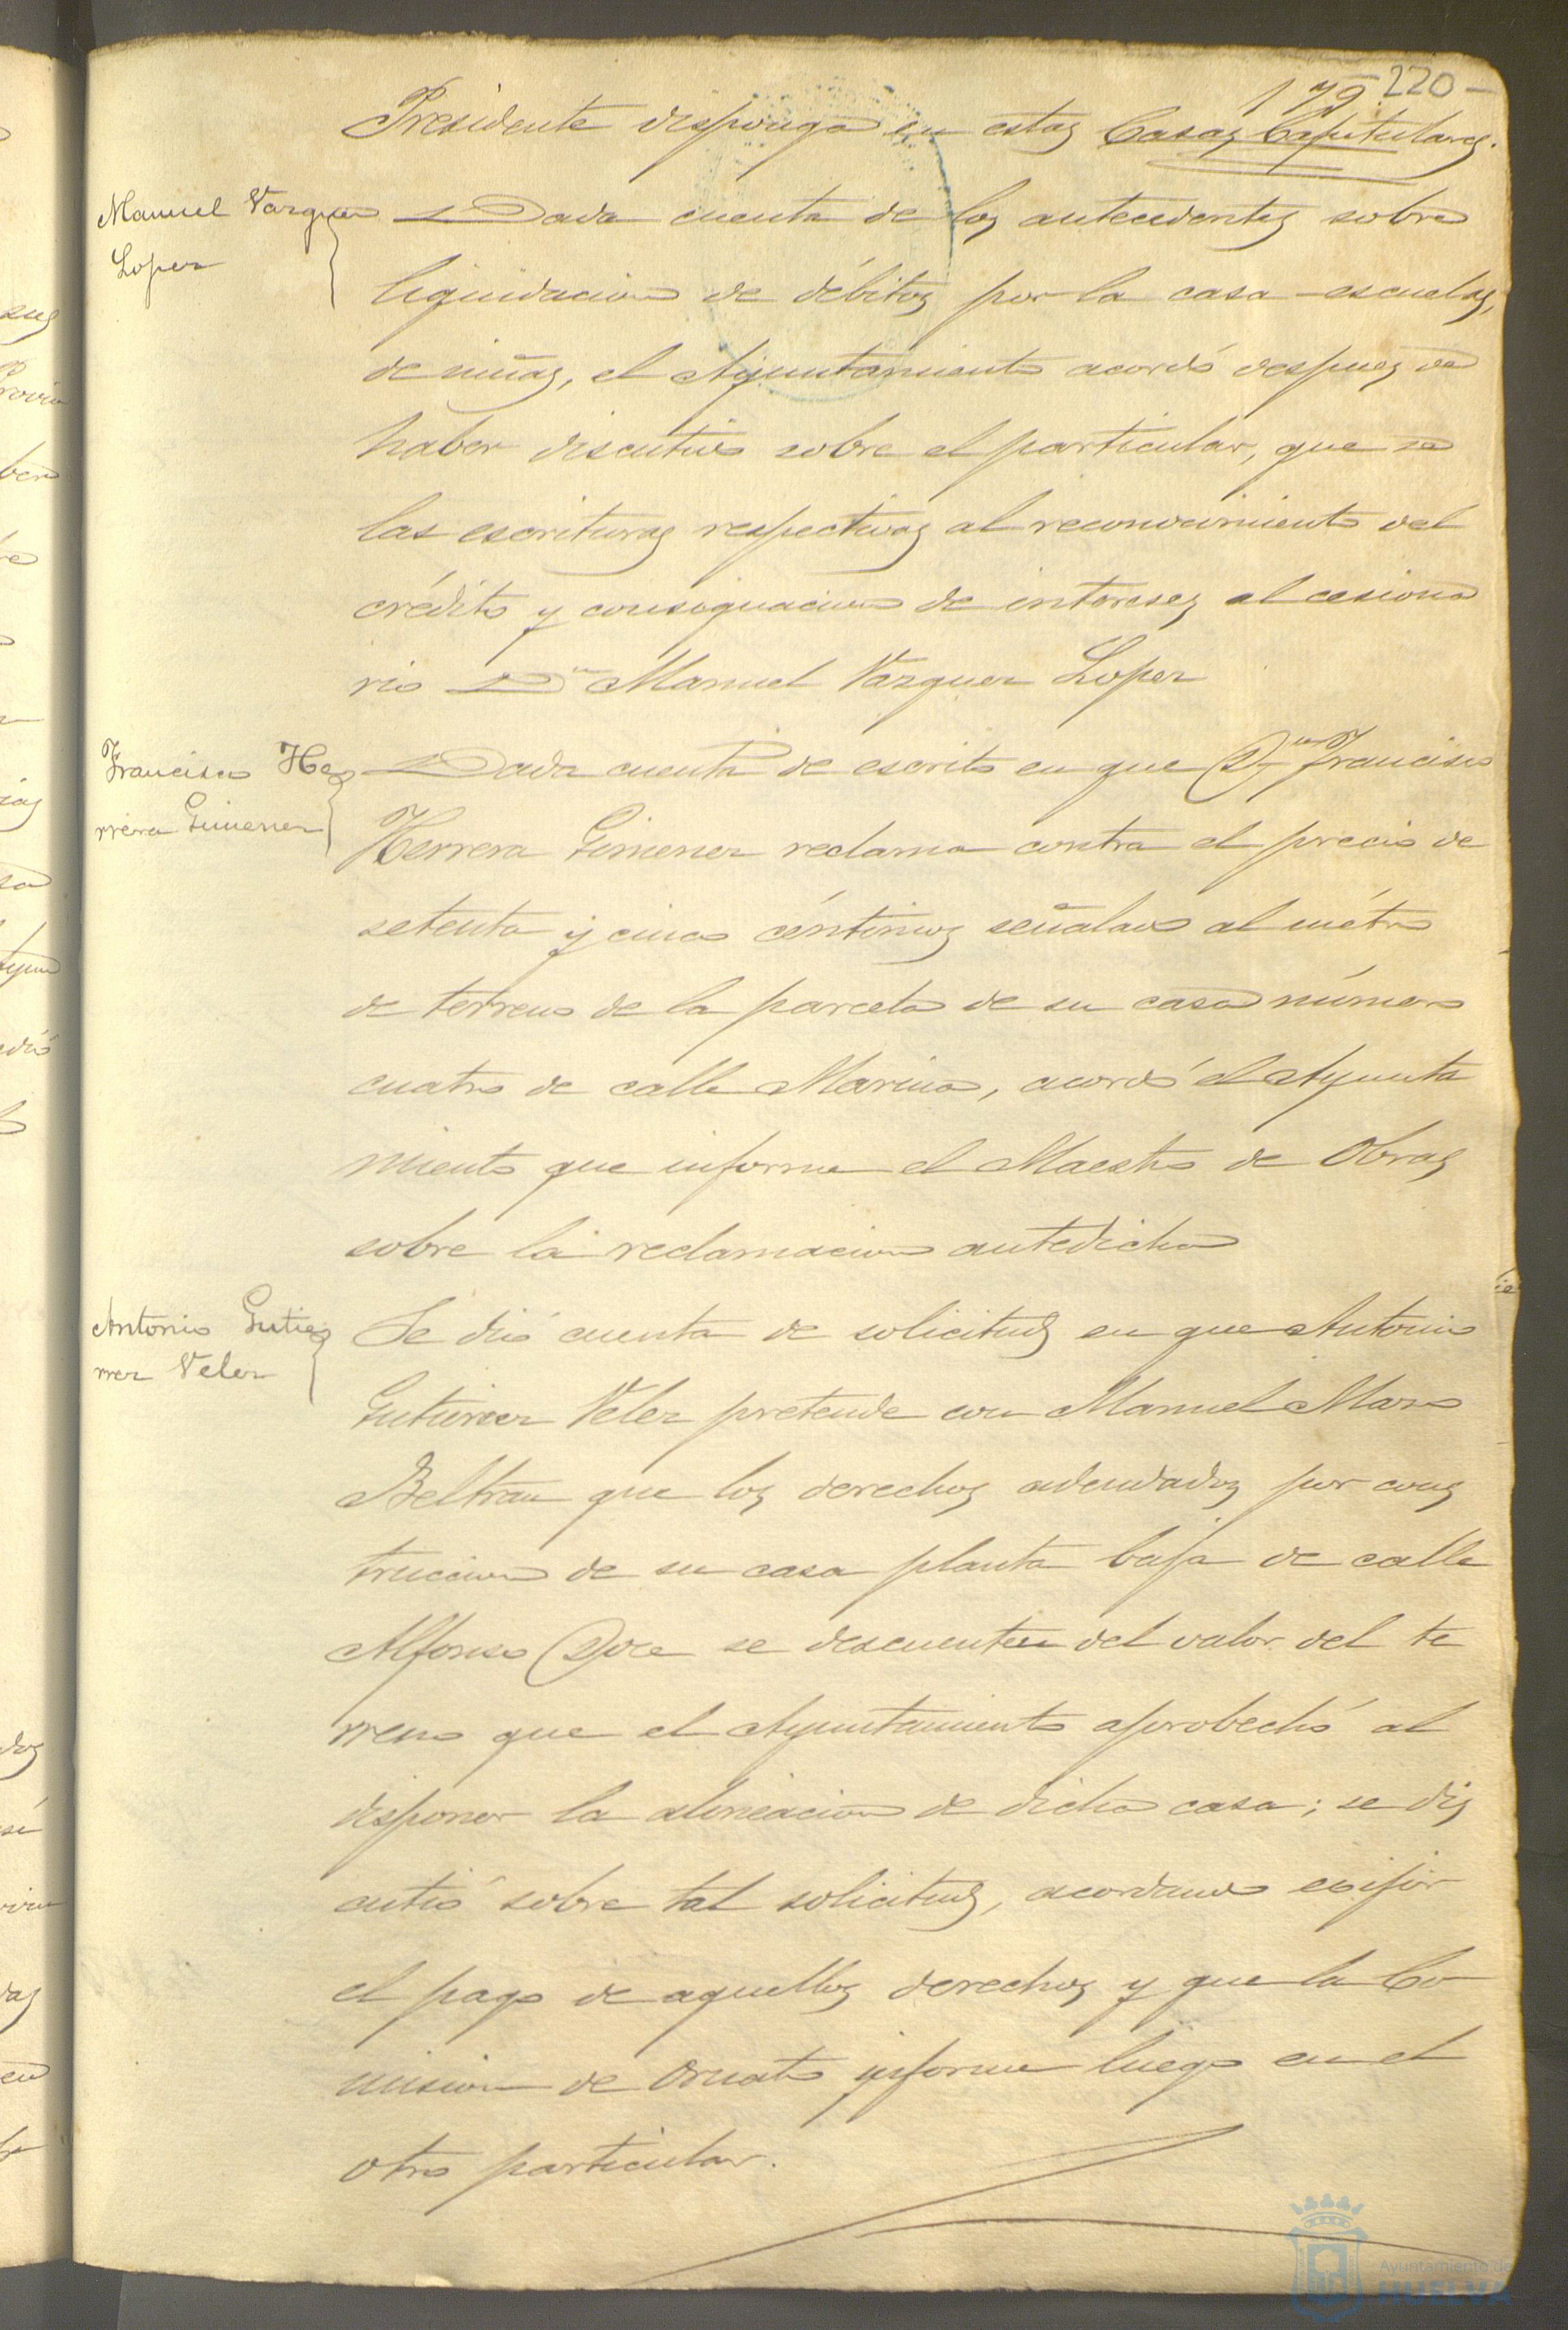 179 220
Presidente disponga en estas Casas Capitulares.
Manuel Vazquez
Lopez
Dada cuenta de los antecedentes sobre
liquidacion de débitos por la casa-escuelas,
de niñas, el Ayuntamiento acordó despues de
haber discutido sobre el particular, que se
las escrituras respectivas al reconocimiento del
crédito y consignacion de intereses al cesiona
rio Dn Manuel Vazquez Lopez
Francisco He
rrera Gimenez
Dada cuenta de escrito en que Dn Francisco
Herrera Gimenez reclama contra el precio de
setenta y cinco céntimos señalado al métro
de terreno de la parcela de su casa número
cuatro de calle Marina, acordó el Ayunta
miento que informe el Maestro de Obras
sobre la reclamacion antedicha
Antonio Gutie
rrez Velez
Se dió cuenta de solicitud en que Antonio
Gutierrez Velez pretende con Manuel Maro
Beltran que los derechos adeudados por cons
truccion de su casa planta baja de calle
Alfonso Doce se descuenten del valor del te
rreno que el Ayuntamiento aprobechó al
disponer la alineacion de dicha casa; se dis
cutió sobre tal solicitud, acordando exijir
el pago de aquellos derechos y que la Co
mision de Ornato informe luego en el
otro particular.
Ayuntamiento de
HUELVA